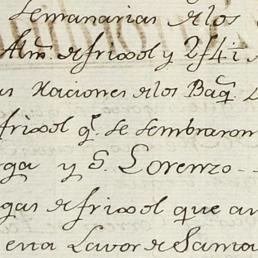 Semanarias de los
Alm.s de frixol y 2/4 i
as Raciones de los Baq.s
frixol q.e se sembraron
rga y S. Lorenzo
gas de frixol que an
en a Lavor de Santa